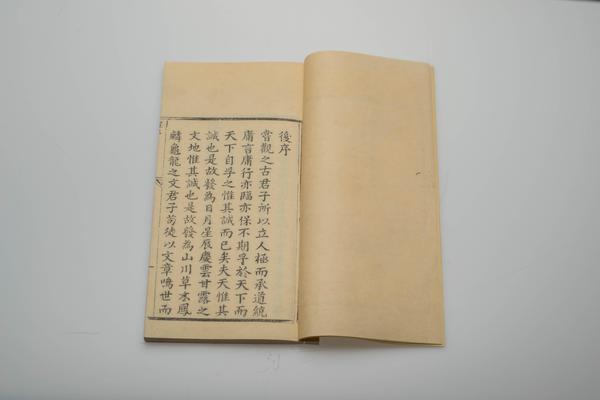 後序
嘗觀之古君子所以立人極而承道統
庸言庸行亦臨亦保不期孚於天下而
天下自孚之惟其誠而已矣夫天惟其
誠也是故發為日月星辰慶雲甘露之
文地惟其誠也是故發為山川草木鳳
麟龜龍之文君子苟徒以文章鳴世而